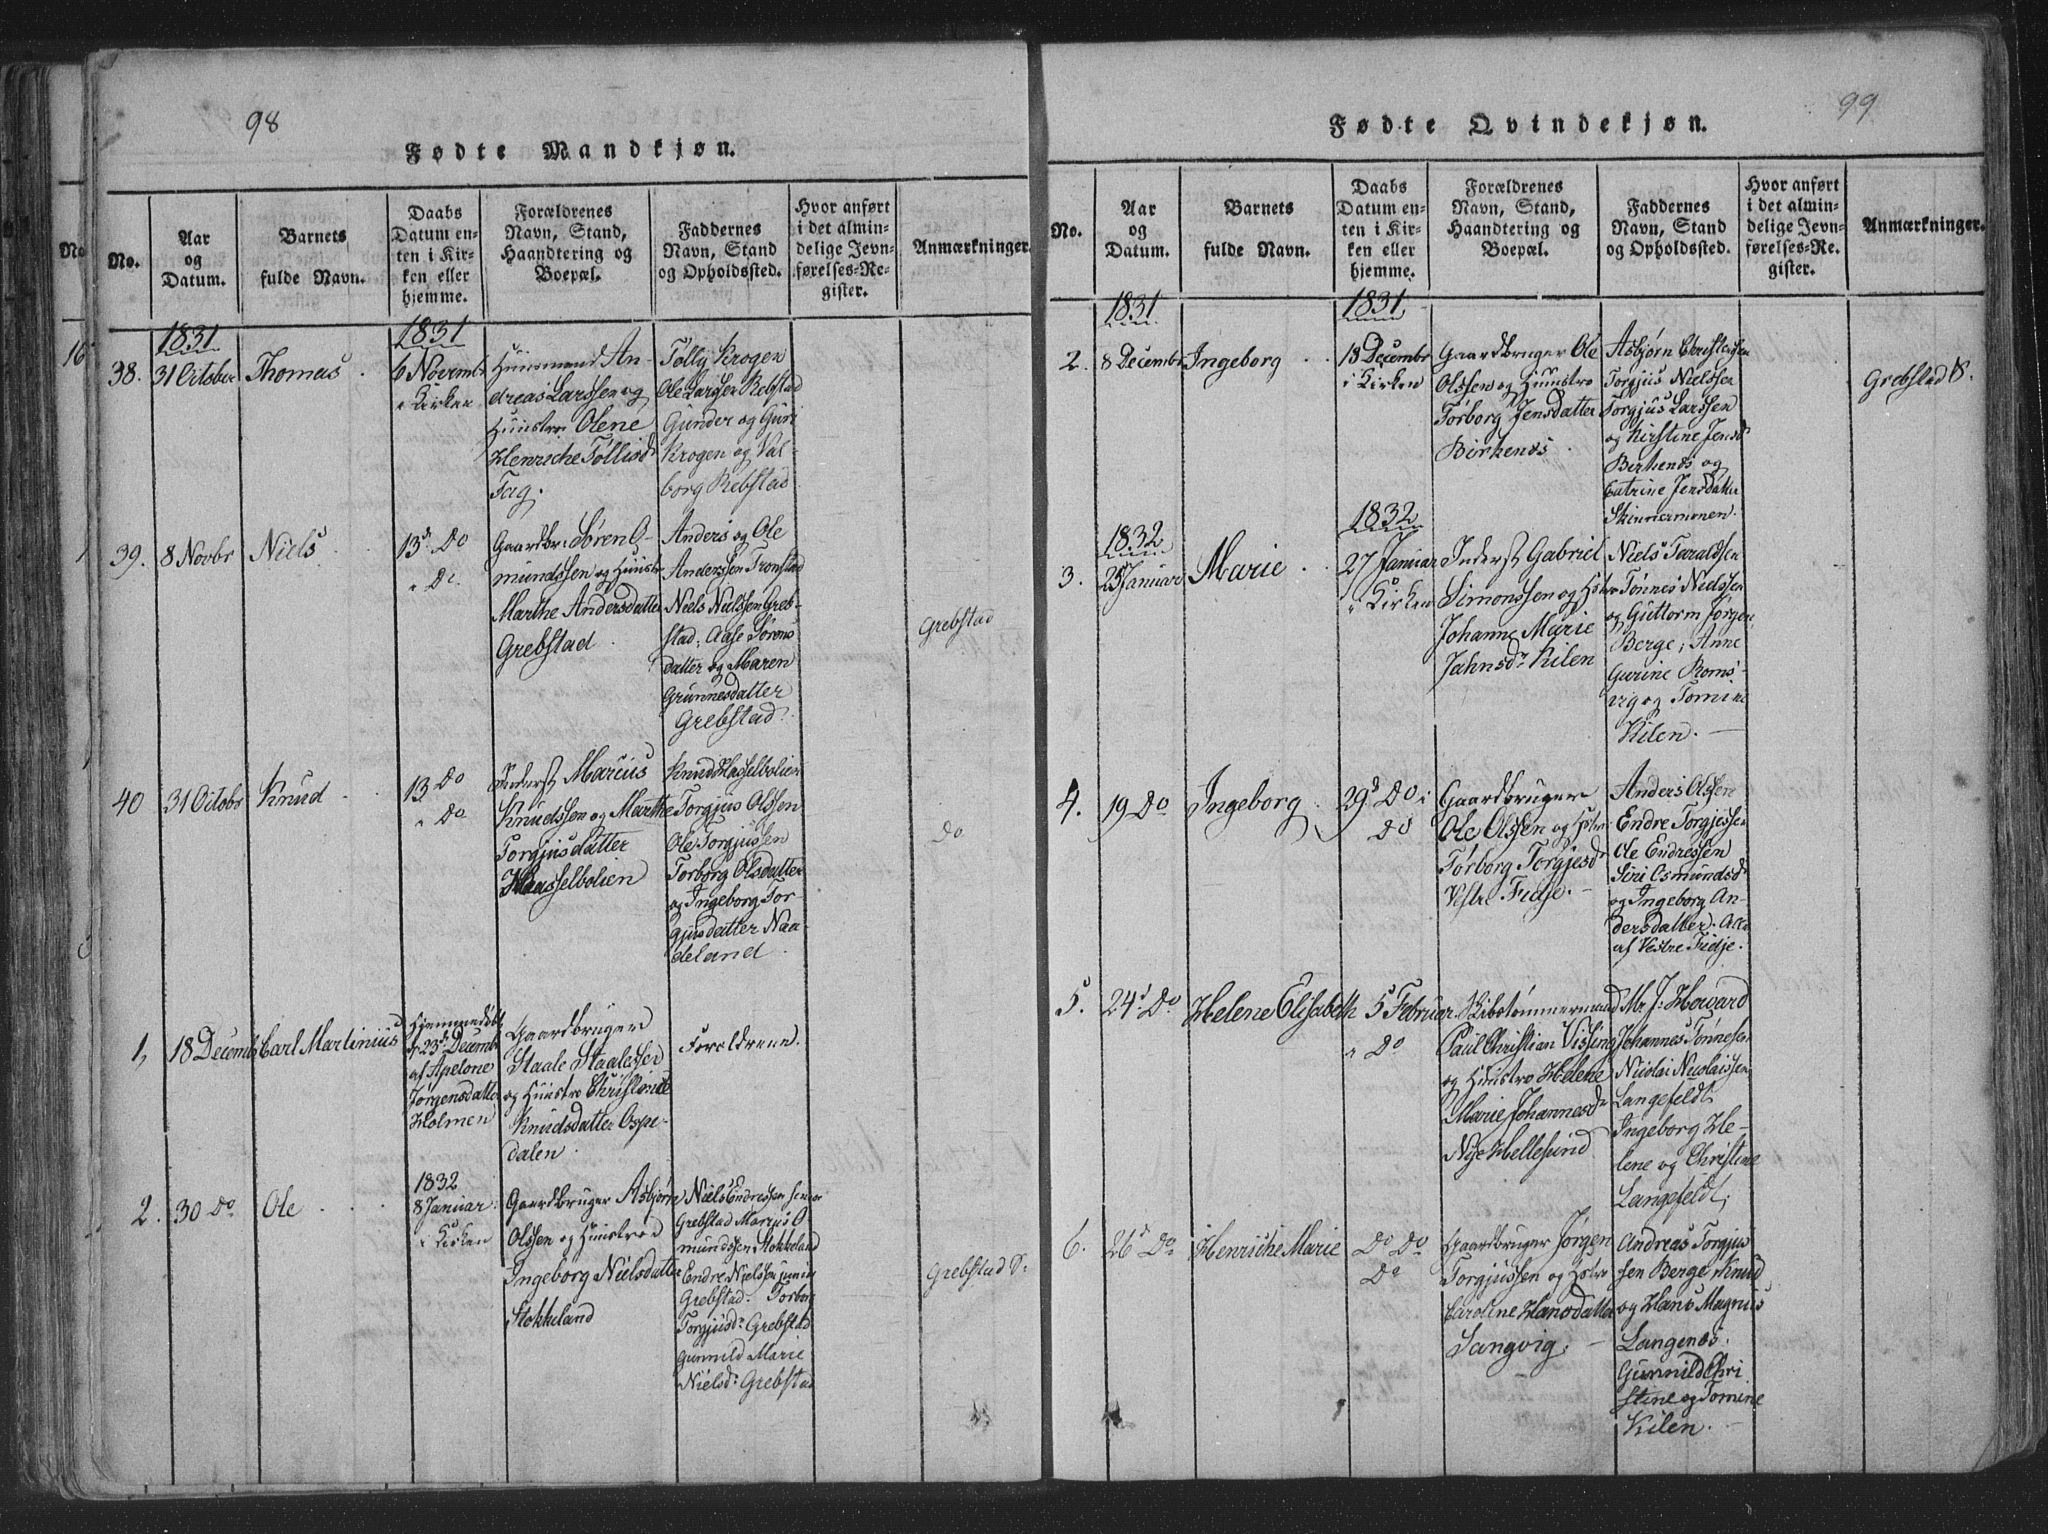 98
Fødte Mandkjøn.
No.
Aar
og
Datum.
Barnets
fulde Navn.
Daabs
Datum en-
ten i Kir-
ken eller
hjemme.
Forældrenes
Navn, Stand,
Haandtering og
Boepæl.
Faddernes
Navn, Stand
og Opholdssted.
Hvor anført
i det almin-
delige Jevn-
førelses-Re-
gister.
Anmærkninger.
1831
38.
31 October
Thomas
1831
6 Novembr
i Kirken
Huusmand An-
dreas Larssen og
Hustro Olene
Henriche Tøllisd
Fag.
Tølly Krogen
Ole Larssen Rebstad
Gunder og Guri
Krogen og Val-
borg Rebstad
39.
8 Novbr
Niels
13de Do
i Do
Gaardbr. Søren O-
mundssen og Huustr
Marthe Andersdatter
Grebstad
Anders og Ole
Anderssen Tronstad
Niels Nielssen Greb-
stad, Aase Sørens-
datter og Maren
Grunnesdatter
Grebstad
Grebstad
40
31 Octobr
Knud
13 Do
i Do
Inderst Marcus
Knudssen og Marthe
Torgjusdatter
Hasselbolien
Knud Hasselbolien
Torgjus Olssen
Ole Torgjussen
Torborg Olsdatter
og Ingeborg Tor-
gjusdatter Naa-
deland
Do
1,
18 Decembr
Carl Martinius
Hjemmedøbt
23de Decembr
af Apelone
Jørgensdatter
Holmen
Gaardbruger
Staale Staalessen
og Huustro Christiane
Knudsdatter Ospe-
dalen
Forældrene.
2.
30 Do
Ole
1832
8 Januar
i Kirken
Gaardbruger Asbjørn
Olssen og Huustroe
Ingeborg Nielsdatter
Stokkeland
Niels Endressen senior
Grebstad Marcus O
mundssen Stokkeland
Endre Nielssen junior
Grebstad. Torbor
Torgjusdr Grebstad
Gunnild Marie
Nielsdr Grebstad
Grebstad S.
99
Fødte Qvindekjøn.
No.
Aar
og
Datum.
Barnets
fulde Navn.
Daabs
Datum en-
ten i Kir-
ken eller
hjemme.
Forældrenes
Navn, Stand,
Haandtering og
Boepæl.
Faddernes
Navn, Stand
og Opholdssted.
Hvor anført
i det almin-
delige Jevn-
førelses-Re-
gister.
Anmærkninger.
1831
2.
8 Decembr
Ingeborg
1831
18 Decembr
i Kirken
Gaardbruger Ole
Olssen og Huustro
Torborg Jensdatter
Birkenes
Asbjørn Christenssen
Torgjus Nielssen
Torgjus Larssen
og Kirstine Jensd
Birkenes og
Catrine Jensdatter
Skinnermonen.
Grebstad S.
1832
3.
25 Januar
Marie
1832
27 Januar
i Kirken
Inderst Gabriel
Simonssen og Hstro
Johanne Marie
Jahnsdr Kilen
Niels Taraldssen
Tønnes Nielssen
og Guttorm Jørgen
Berge, Anne
Gurine Roms-
vig og Tomine
Kilen.
4.
19 Do
Ingeborg
29de Do i
Do
Gaardbruger
Ole Olssen og Hstro
Torborg Torgjesd
Vestre Fidje.
Anders Olssen
Endre Torgjessen
Ole Endressen
Siri Osmundsd
og Ingeborg An-
dersdatter. Alle
af Vestre Fidje.
5.
24de Do
Helene Elisabeth
5 Februar
i Do
Skibstømmermand
Paul Christian Vissing
og Huustro Helene
Marie Johannesd
Nye Hellesund
Mr. J. Howard
Johannes Tønnessen
Nicolai Nicolaissen
Langefeldt
Ingeborg He-
lene og Christine
Langefeldt,
6.
26de Do
Henriche Marie
Do Do
Do
Gaardbruger Jørgen
Torgjussen og Hstro
Caroline Hansdatter
Langvig.
Andreas Torgjus
sen Berge, Knud
og Hans Magnus
Langenes.
Gunnild Chri
stine og Tomine
Kilen.